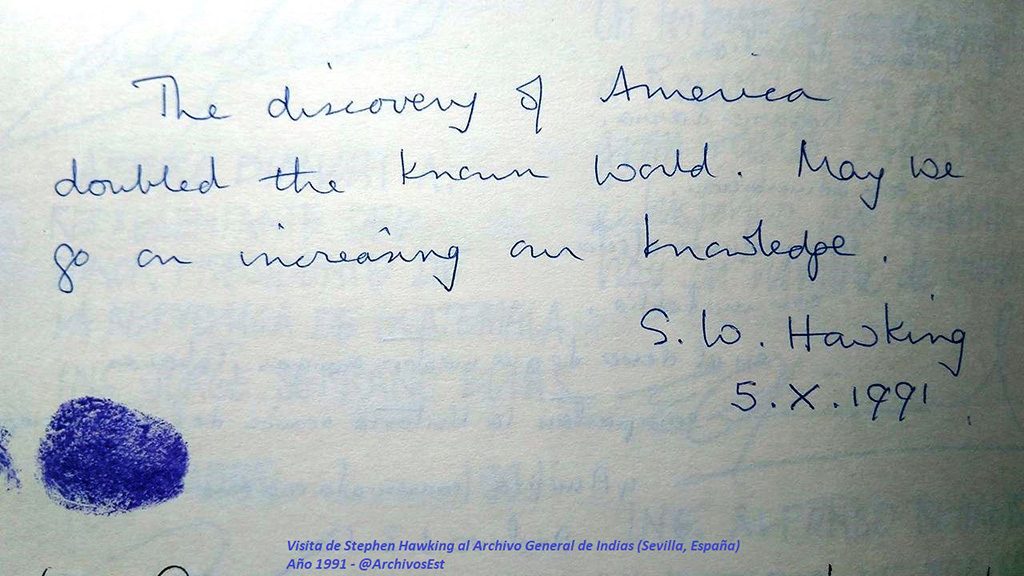 The discovery of America
doubled the known world. May we
go on increasing our knowledge.
S. W. Hawking
5.X.1991
Visita de Stephen Hawking al Archivo General de Indias (Sevilla, España)
Año 1991 - @ArchivosEst